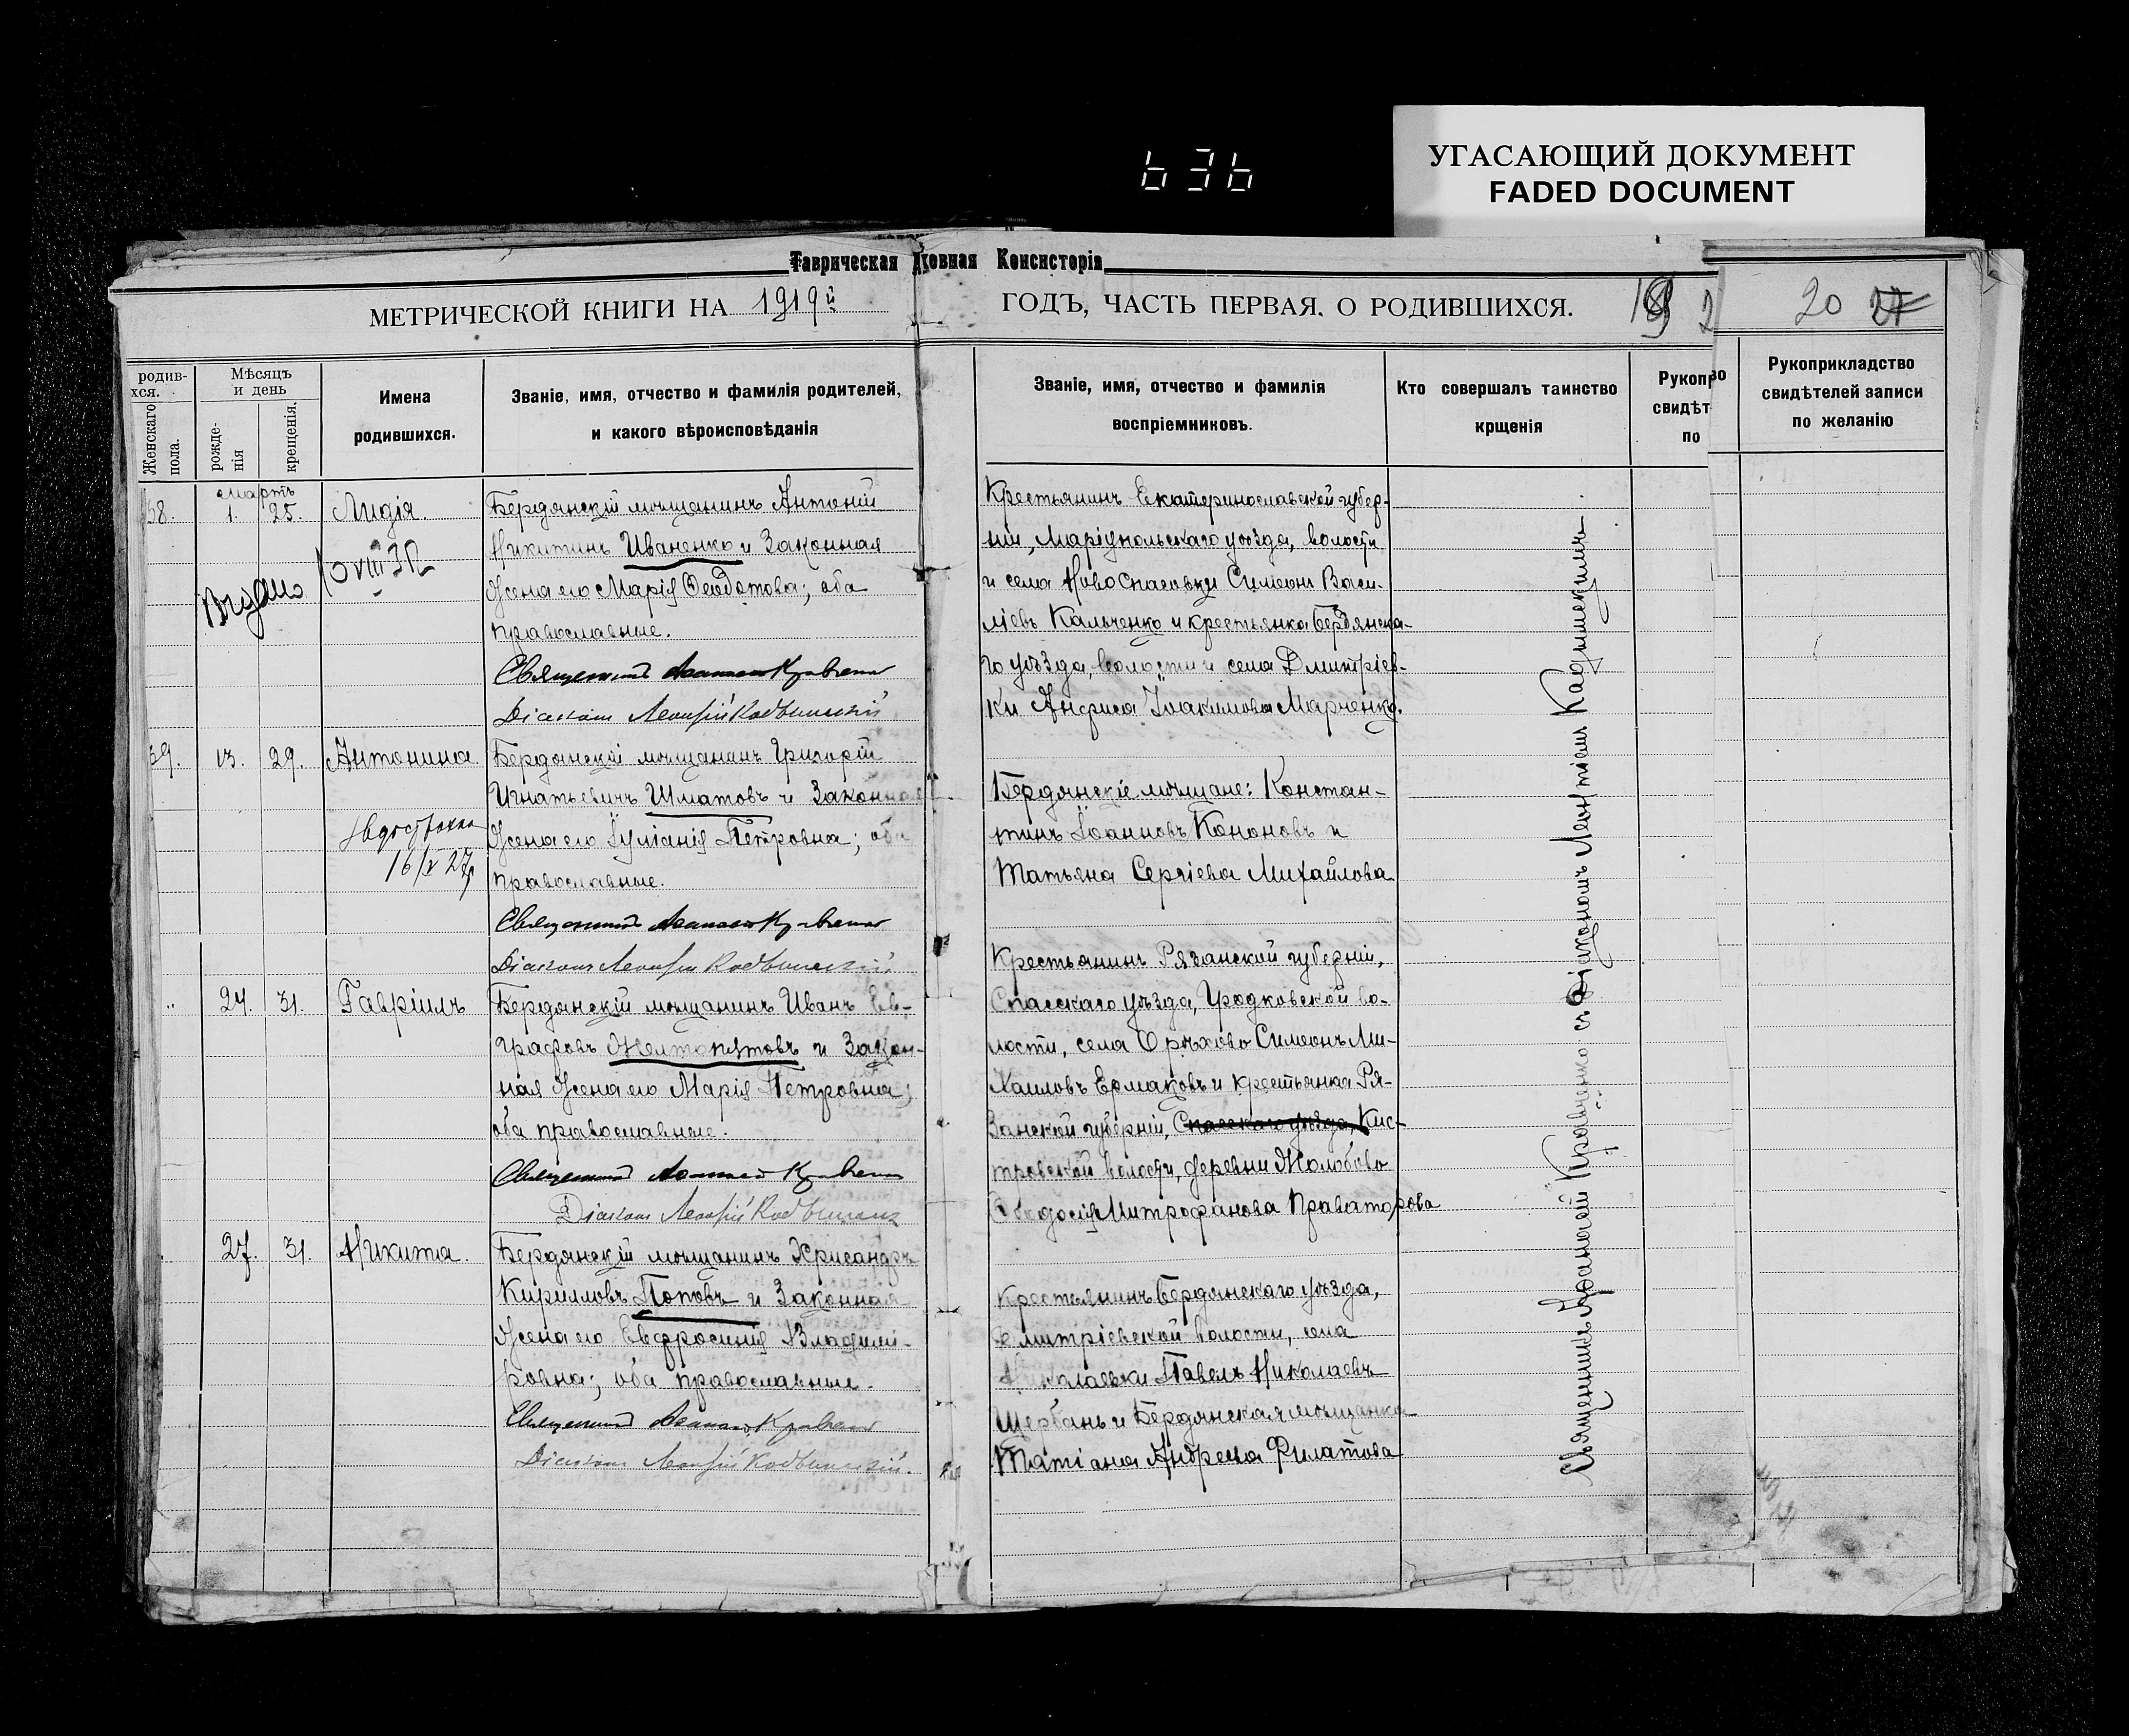 636
УГАСАЮЩИЙ ДОКУМЕНТ
FADED DOCUMENT
Таврическая ховная Консисторія
МЕТРИЧЕСКОЙ КНИГИ НА 1919й
ГОДЪ, ЧАСТЬ ПЕРВАЯ. О РОДИВШИХСЯ.
20 27
родив-
хся.
Женскаго
пола.
Мѣсяцъ
и день
рожде-
нія
крещенія.
Имена
родившихся.
Званіе, имя, отчество и фамилія родителей,
и какого вѣроисповѣданія
Званіе, имя, отчество и фамилія
воспріемниковъ.
Кто совершалъ таинство
крщенія
Рукопр
свидѣт
по
Рукоприкладство
свидѣтелей записи
по желанію
мартъ
38. 1. 25. Лидія.
Бердянскій мѣщанинъ Антоній
Никитинъ Иваненко и законная
жена его Марія Ѳеодотова; оба
православные.
Священникъ Афанасій Кравченко
Діаконъ Леонтій
Выдано
Крестьянинъ Екатеринославской губер-
ніи, Маріупольскаго уѣзда, волости
и села Новоспасовки Симеонъ Васи-
ліевъ Кальченко и крестьянка Бердянска-
го уѣзда, волости и села Дмитріев-
ки Анфиса Іоакимова Марченко.
39. 13. 29. Антонина
Бердянскій мѣщанинъ Григорій
Игнатьевичъ Шматовъ и законная
жена его Іуліанія Петровна; оба
православные.
Священникъ Афанасій Кравченко
Діаконъ Леонтій
16/X 27
Бердянскіе мѣщане: Констан-
тинъ Іоанновъ Кононовъ и
Татьяна Сергіева Михайлова
" 24. 31. Гавріилъ
Бердянскій мѣщанинъ Иванъ Ев-
графовъ Желтопятовъ и закон-
ная жена его Марія Петровна;
оба православные.
Священникъ Афанасій Кравченко
Діаконъ Леонтій
Крестьянинъ Рязанской губерніи,
Спасскаго уѣзда, Городковской во-
лости, села Орѣхово Симеонъ Ми-
хаиловъ Ермаковъ и крестьянка Ря-
занской губерніи, Спасскаго уѣзда, Кис-
тровской волости, деревни Жолобово
Ѳеодосія Митрофанова Праваторова
27. 31. Никита.
Бердянскій мѣщанинъ Хрисанфъ
Кирилловъ Поповъ и законная
жена его Евфросинія Владими-
ровна; оба православные.
Священникъ Афанасій Кравченко
Діаконъ Леонтій
Крестьянинъ Бердянскаго уѣзда,
Дмитріевской волости, села
Николаевки Павелъ Николаевъ
Щербань и Бердянская мѣщанка
Татіана Андреева Филатова
Священникъ Афанасій Кравченко съ діакономъ Леонтіемъ